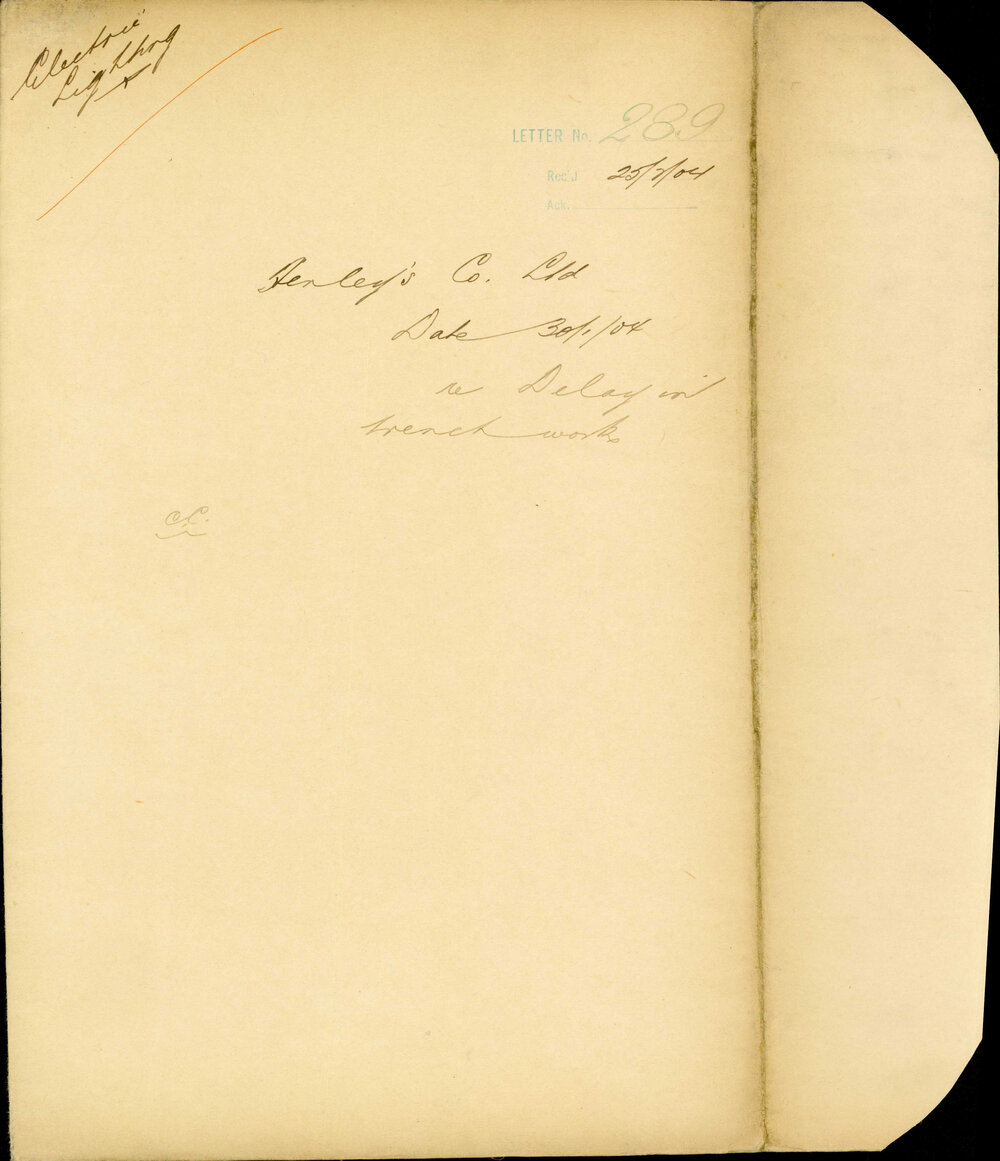 Electric
Lighting
LETTER No. 289
Rec'd 25/2/04
Ack.
Henley's Co. Ltd
Date 30/1/04
re Delay in
trench works
C.C.